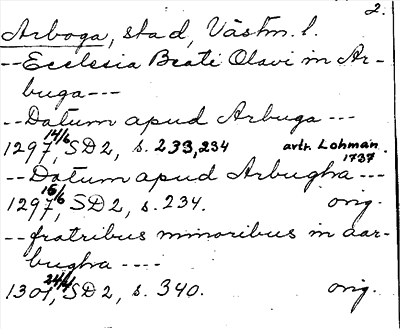 2.
Arboga, stad, Västm. l.
-- Ecclesia Beati Olavi in Ar-
buga ---
-- Datum apud Arbuga ---
1297 14/6, SD2, s. 233, 234 avtr. Lohman 1737.
-- Datum apud Arbugha ---
1297 15/6, SD2, s. 234. orig.
-- fratribus minoribus in aar-
bugha ----
1301 24/4, SD2, s. 340. orig.